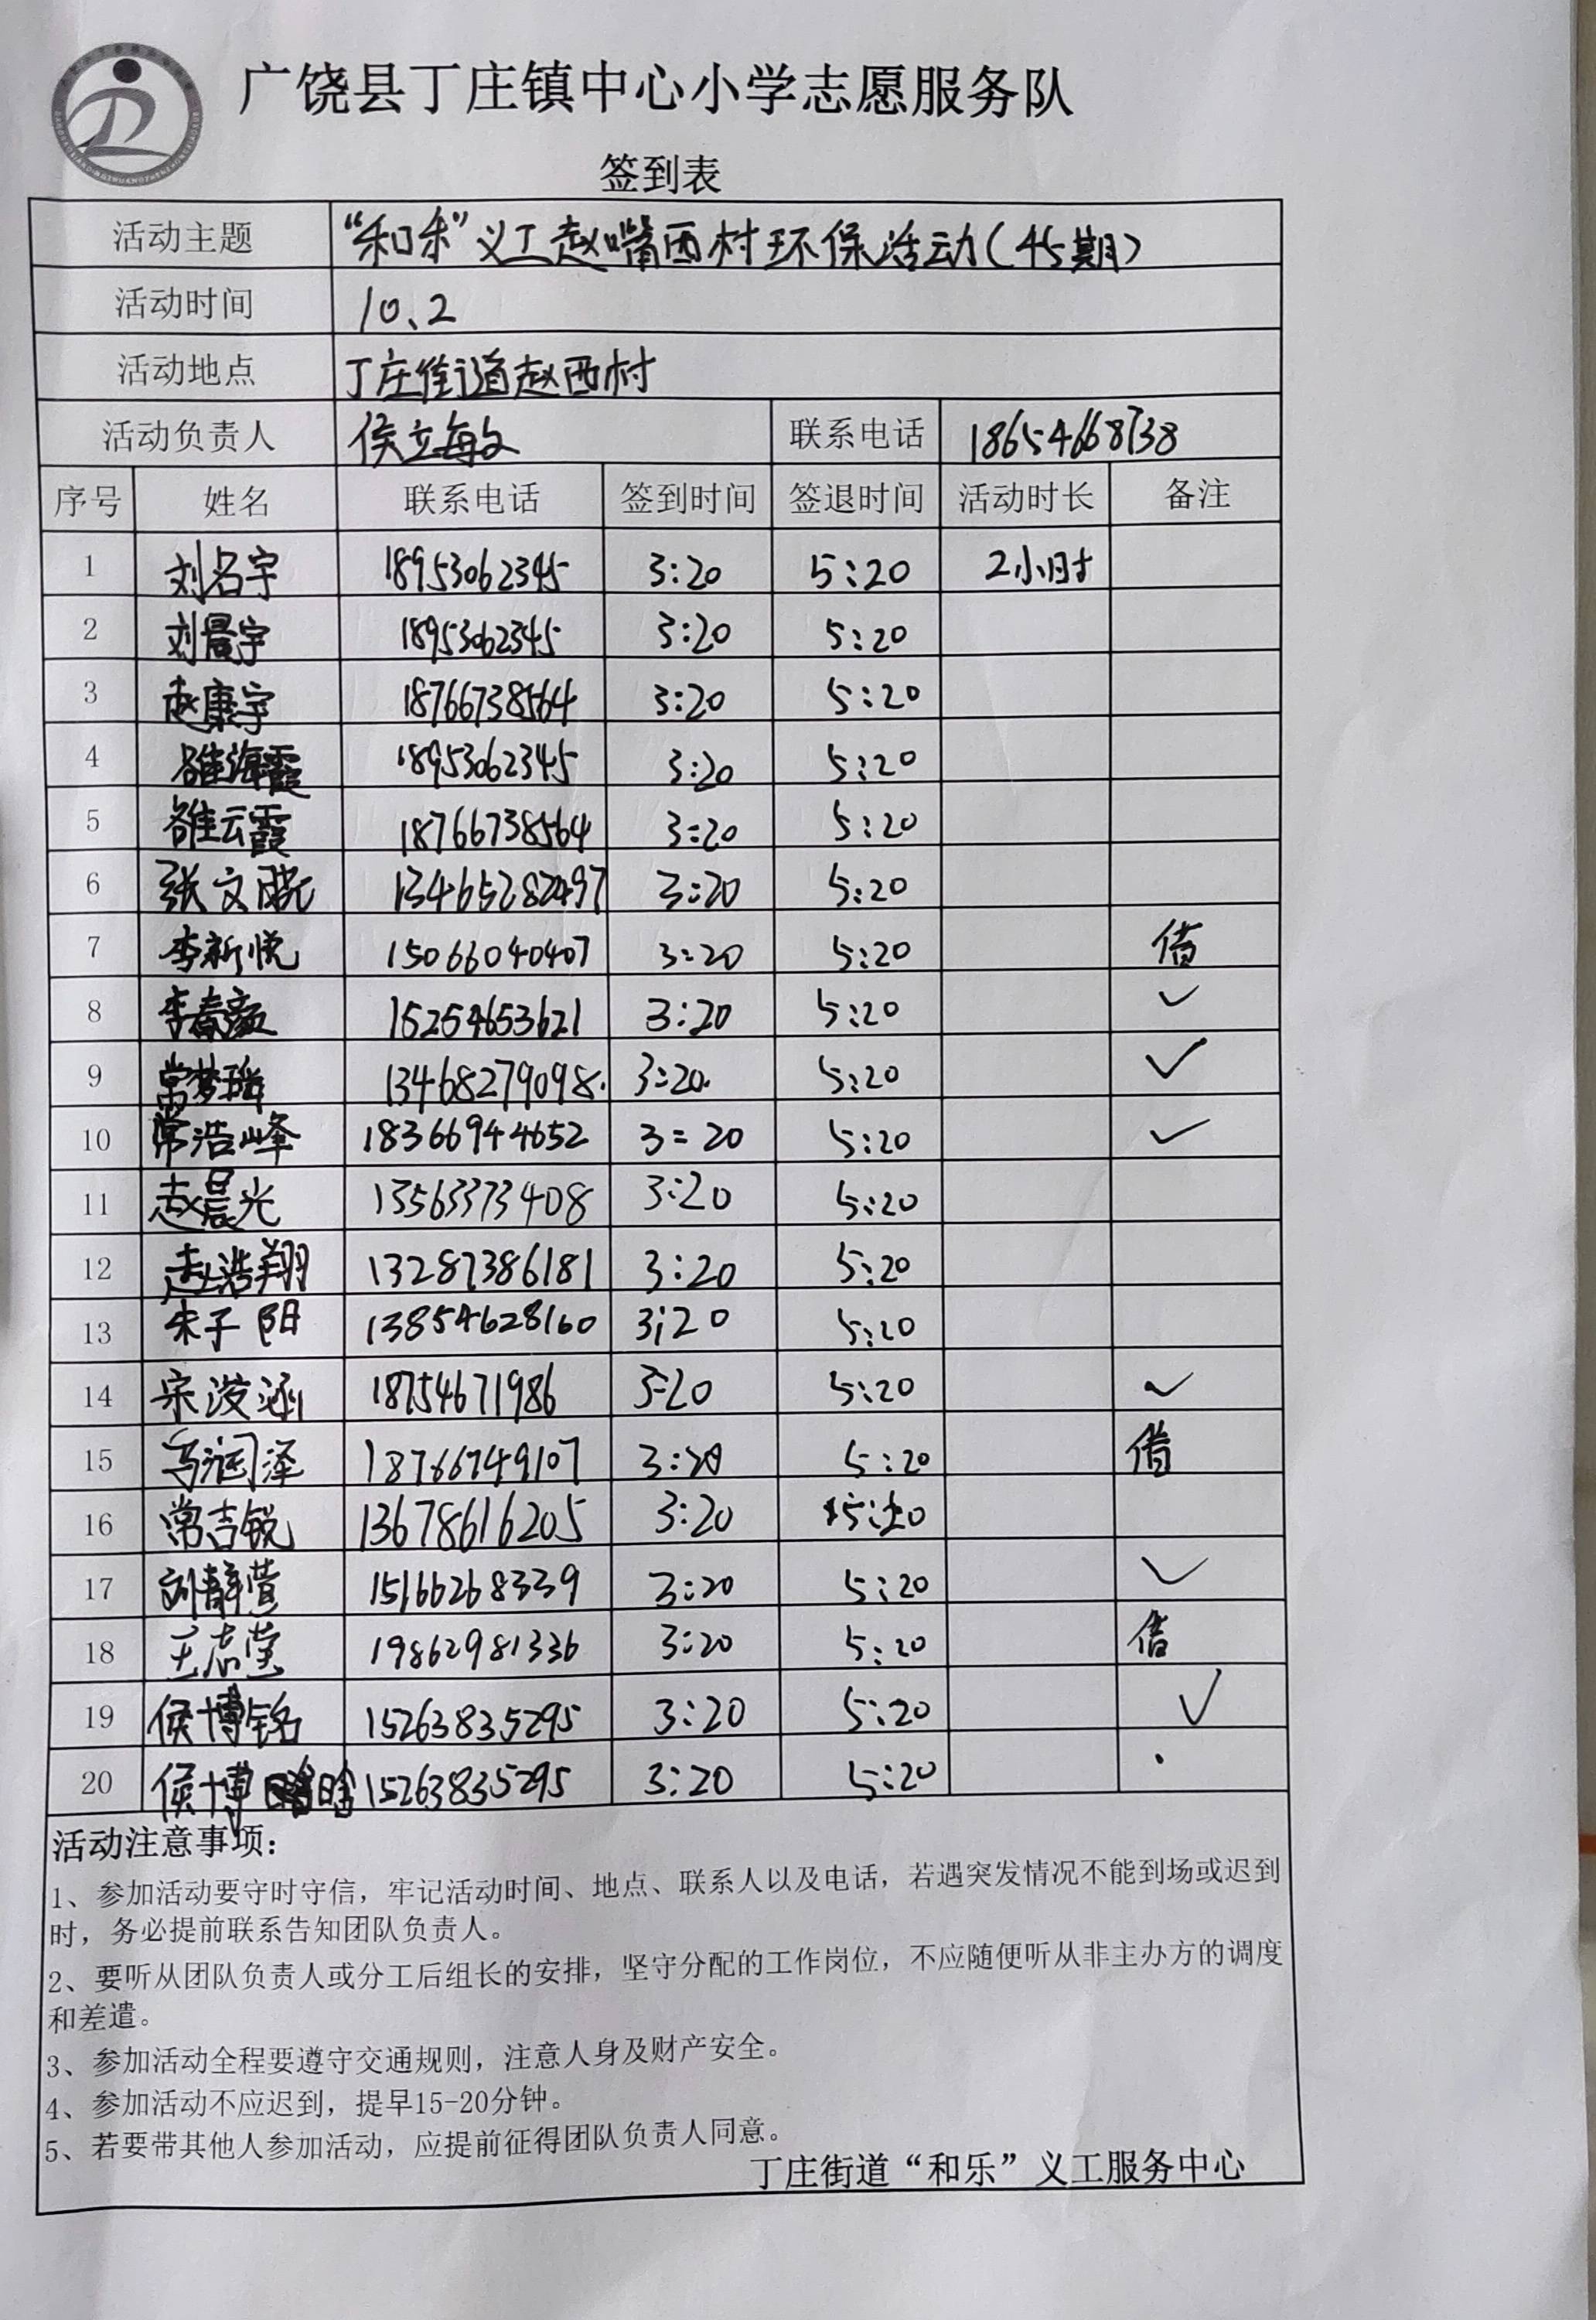 广饶县丁庄镇中心小学志愿服务队
签到表
活动主题 “和乐”义工赵嘴西村环保活动(45期)
活动时间 10、2
活动地点 丁庄街道赵西村
活动负责人 侯立敏 联系电话 18654668738
序号 姓名 联系电话 签到时间 签退时间 活动时长 备注
1 刘名宇 18953062345 3:20 5:20 2小时
2 刘晨宇 18953062345 3:20 5:20
3 赵康宇 18766738564 3:20 5:20
4 雒海霞 18953062345 3:20 5:20
5 雒云霞 18766738564 3:20 5:20
6 张文 3:20 5:20
7 李新悦 15066040407 3:20 5:20 借
8 李春 15254653621 3:20 5:20 ✓
9 常梦瑞 13468279098. 3:20. 5:20 ✓
10 常浩峰 18366944652 3=20 5:20 ✓
11 赵晨光 13563373408 3:20 5:20
12 赵浩翔 13287386181 3:20 5:20
13 朱子阳 13854628160 3:20 5:20
14 宋浚涵 18754671986 3:20 5:20 ✓
15 马润泽 18766749107 3:20 5:20 借
16 常吉锐 13678616205 3:20 5:20
17 刘静萱 15166268339 3:20 5:20 ✓
18 王志莹 19862981336 3:20 5:20 借
19 侯博铭 15263835295 3:20 5:20 ✓
20 侯博晗 15263835295 3:20 5:20
活动注意事项:
1、参加活动要守时守信，牢记活动时间、地点、联系人以及电话，若遇突发情况不能到场或迟到
时，务必提前联系告知团队负责人。
2、要听从团队负责人或分工后组长的安排，坚守分配的工作岗位，不应随便听从非主办方的调度
和差遣。
3、参加活动全程要遵守交通规则，注意人身及财产安全。
4、参加活动不应迟到，提早15-20分钟。
5、若要带其他人参加活动，应提前征得团队负责人同意。
丁庄街道“和乐”义工服务中心